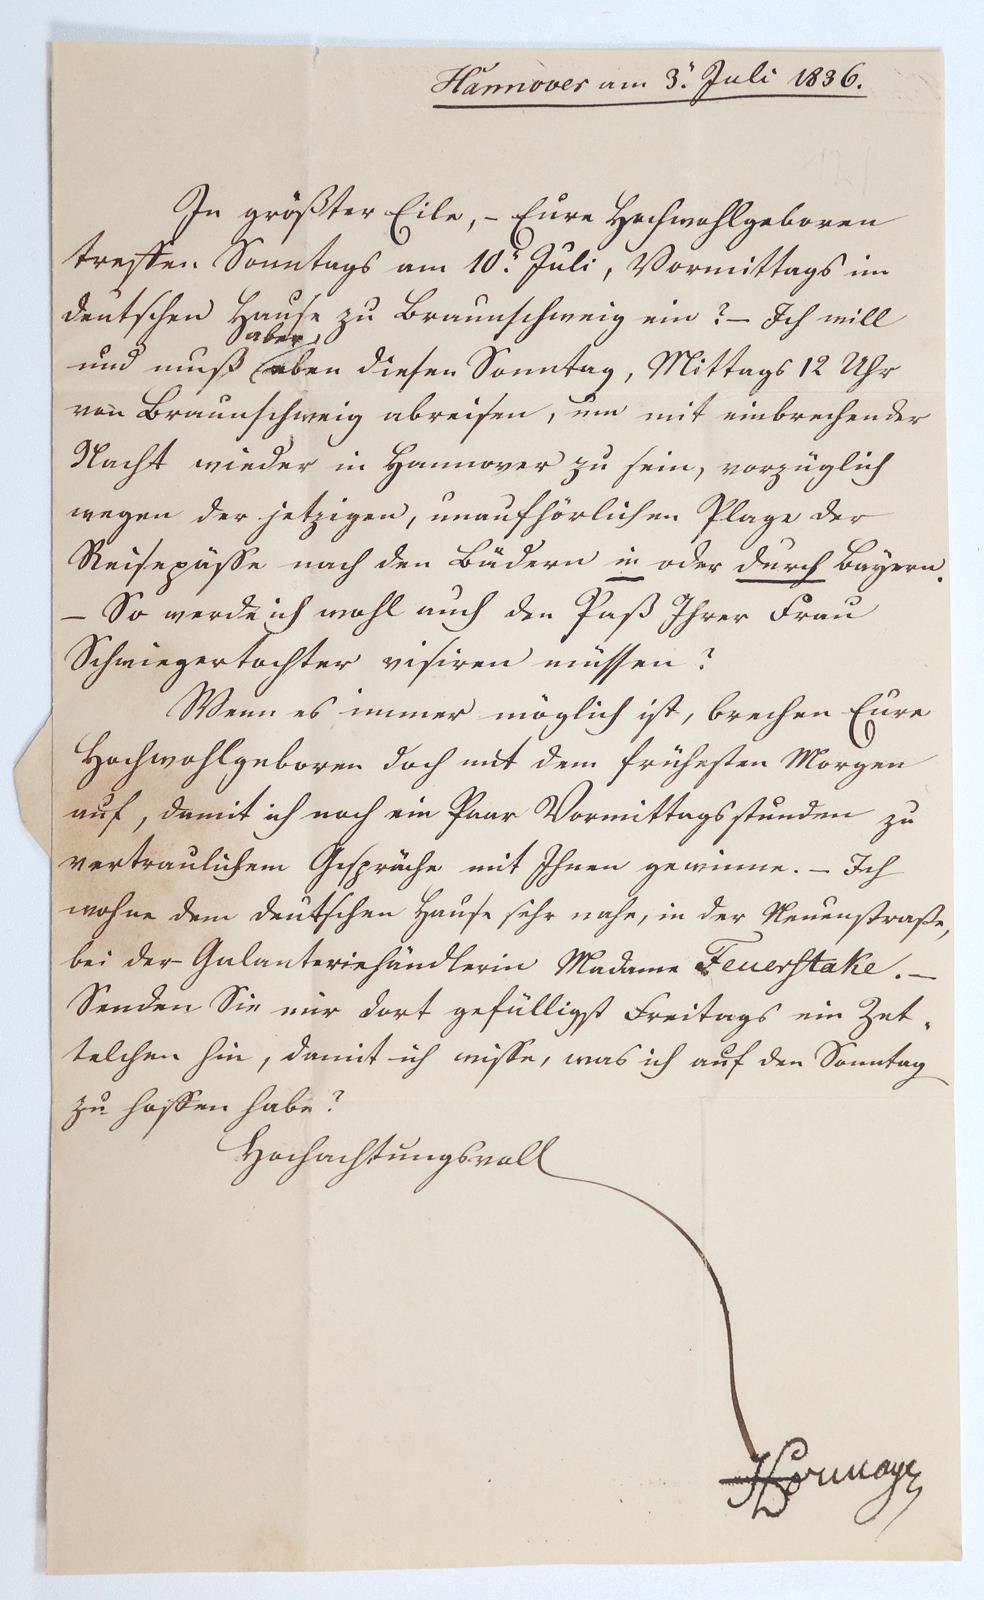 Hannover am 3. Juli 1836.
In größter Eile, – Eure Hochwohlgeboren
treffen Sonntags am 10. Juli, Vormittags im
deutschen Hause zu Braunschweig ein? – Ich will
aber
und muß eben diesen Sonntag, Mittags 12 Uhr
von Braunschweig abreisen, um mit einbrechender
Nacht wieder in Hannover zu sein, vorzüglich
wegen der jetzigen, unaufhörlichen Plage der
Reisepässe nach den Bädern in oder durch Bayern.
– So werde ich wohl auch den Paß Ihrer Frau
Schwiegertochter visiren müssen?
Wenn es immer möglich ist, brechen Eure
Hochwohlgeboren doch mit dem frühesten Morgen
auf, damit ich noch ein Paar Vormittagsstunden zu
vertraulichem Gespräche mit Ihnen gewinne. – Ich
wohne dem deutschen Hause sehr nahe, in der Neuenstraße,
bei der Galanteriehändlerin Madame Feuerstake. –
Senden Sie mir dort gefälligst Freitags ein Zet-
telchen hin, damit ich wisse, was ich auf den Sonntag
zu hoffen habe?
Hochachtungsvoll
Hormayr